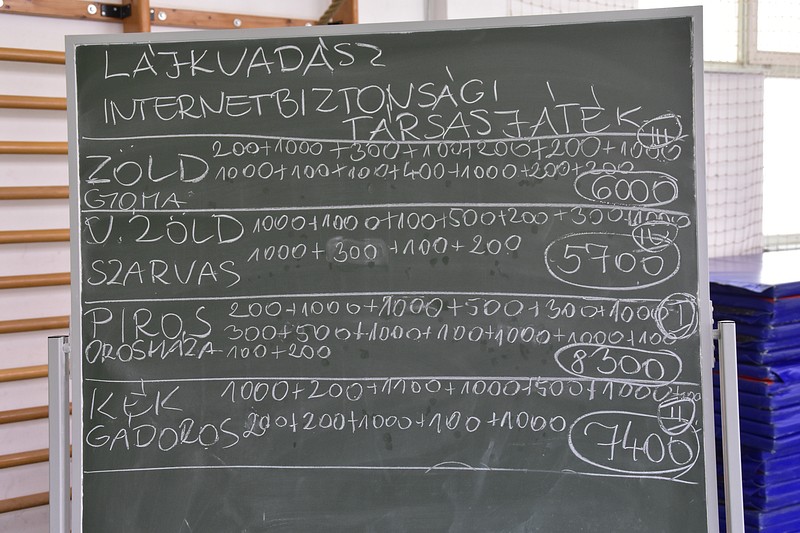 LÁJKVADÁSZ
INTERNETBIZTONSÁGI
TÁRSASJÁTÉK
ZÖLD 200+1000+300+100+200+200+1000 III
1000+100+100+400+1000+200+200
GYOMA 6000
V. ZÖLD 1000+1000+100+500+200+300+1000
SZARVAS 1000+300+100+200 5700
PIROS 200+1000+1000+500+300+1000 I
300+500+1000+100+1000+1000+100
OROSHÁZA 100+200 8300
KÉK 1000+200+1100+1000+500+1000+100 II
GÁDOROS 200+200+1000+100+1000 7400